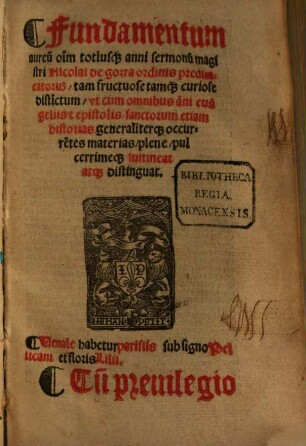 Fundamentum
aureū oīm totiusq̄ anni sermonū magi
stri Nicolai de gorra ordinis predi
catorum / tam fructuose tamq̄ curiose
distīctum / vt cum omnibus āni euā
geliis & epistolis sanctorum etiam
historias generaliterq̄ occur-
rētes materias / plene / pul
cerrimeq̄ luminet
atq̄ distinguat.
BIBLIOTHECA
REGIA
MONACENSIS.
IEHAN PETIT
Uenale habetur parisiis sub signo Pel
licani et floris Lilii.
Cū preuilegio